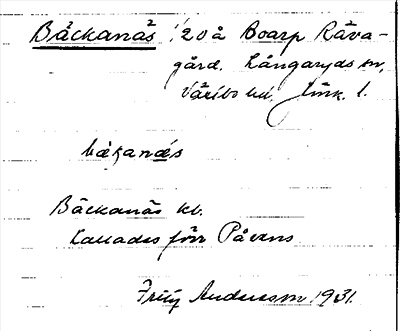 Bäckanäs 1/20 å Boarp Räva-
gård. Långaryds sn,
Västbo hd. Jönk. l.
bäkanäs
Bäckanäs kl.
kallades förr Påvens
Fritz Andersson 1931.